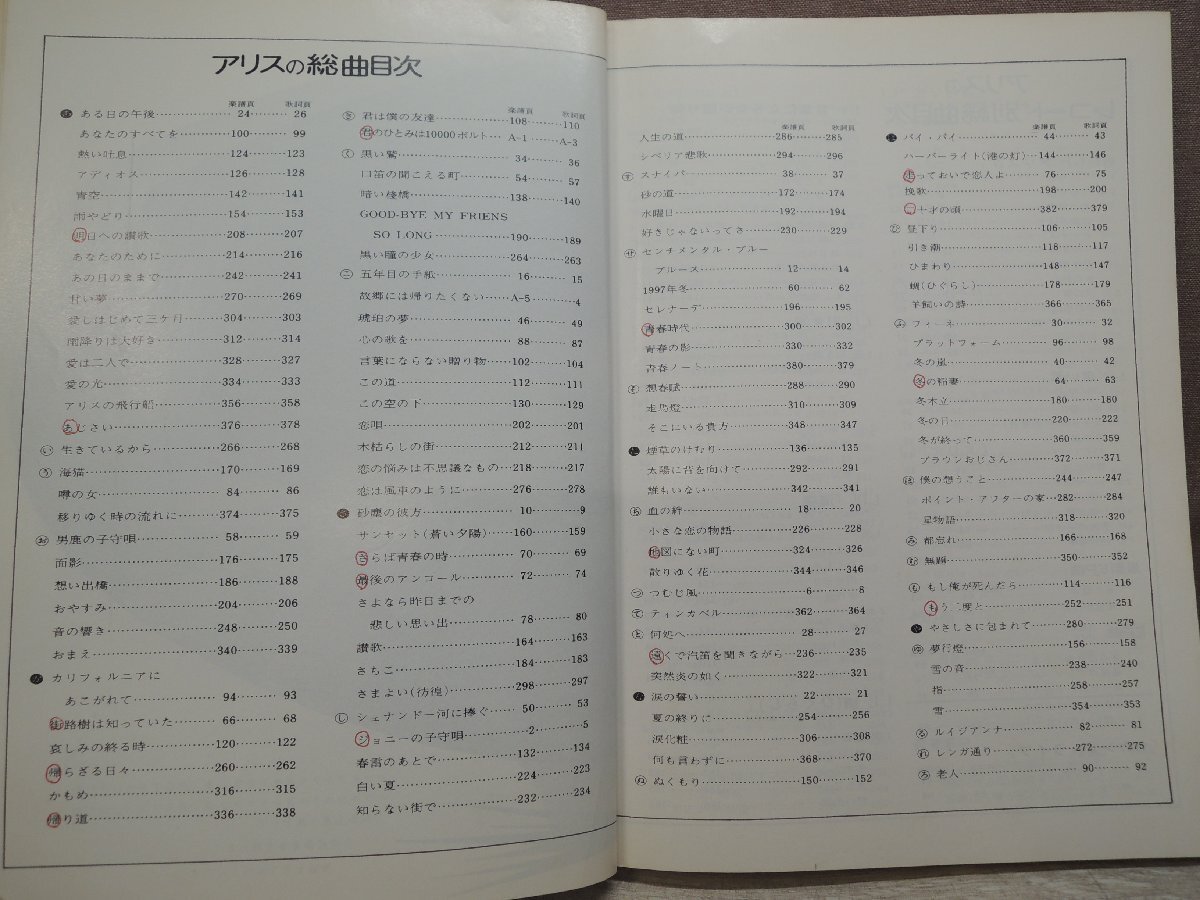 アリスの総曲目次
楽譜頁 歌詞頁
あ ある日の午後……24……26
あなたのすべてを……100……99
熱い吐息……124……123
アディオス……126……128
青空……142……141
雨やどり……154……153
明日への讃歌……208……207
あなたのために……214……216
あの日のままで……242……241
甘い夢……270……269
愛しはじめて三ケ月……304……303
雨降りは大好き……312……314
愛は二人で……328……327
愛の光……334……333
アリスの飛行船……356……358
あじさい……376……378
い 生きているから……266……268
う 海猫……170……169
噂の女……84……86
移りゆく時の流れに……374……375
お 男鹿の子守唄……58……59
面影……176……175
想い出橋……186……188
おやすみ……204……206
音の響き……248……250
おまえ……340……339
カリフォルニアに
あこがれて……94……93
街路樹は知っていた……66……68
哀しみの終る時……120……122
帰らざる日々……260……262
かもめ……316……315
帰り道……336……338
楽譜頁 歌詞頁
き 君は僕の友達……108……110
君のひとみは10000ボルト…A-1……A-3
く 黒い鷲……34……36
口笛の聞こえる町……54……57
暗い棧橋……138……140
GOOD-BYE MY FRIENS
SO LONG……190……189
黒い瞳の少女……264……263
こ 五年目の手紙……16……15
故郷には帰りたくない……A-5……4
琥珀の夢……46……49
心の歌を……88……87
言葉にならない贈り物……102……104
この道……112……111
この空の下……130……129
恋唄……202……201
木枯らしの街……212……211
恋の悩みは不思議なもの…218……217
恋は風車のように……276……278
砂塵の彼方……10……9
サンセット(蒼い夕陽)……160……159
さらば青春の時……70……69
最後のアンコール……72……74
さよなら昨日までの
悲しい思い出……78……80
讃歌……164……163
さちこ……184……183
さまよい(彷徨)……298……297
し シェナンドー河に捧ぐ……50……53
ジョニーの子守唄……2……5
春雷のあとで……132……134
白い夏……224……223
知らない街で……232……234
楽譜頁 歌詞頁
人生の道……286……285
シベリア悲歌……294……296
す スナイパー……38……37
砂の道……172……174
水曜日……192……194
好きじゃないってさ……230……229
せ センチメンタル・ブルー
ブルース……12……14
1997年冬……60……62
セレナーデ……196……195
青春時代……300……302
青春の影……330……332
青春ノート……380……379
そ 想春賦……288……290
走馬燈……310……309
そこにいる貴方……348……347
煙草のけむり……136……135
太陽に背を向けて……292……291
誰もいない……342……341
ち 血の絆……18……20
小さな恋の物語……226……228
地図にない町……324……326
散りゆく花……344……346
つ つむじ風……6……8
て ティンカベル……362……364
と 何処へ……28……27
遠くで汽笛を聞きながら…236……235
突然炎の如く……322……321
涙の誓い……22……21
夏の終りに……254……256
涙化粧……306……308
何も言わずに……368……370
ぬ ぬくもり……150……152
楽譜頁 歌詞頁
バイ・バイ……44……43
ハーバーライト(港の灯)…144……146
走っておいで恋人よ……76……75
挽歌……198……200
二十才の頃……382……379
ひ 昼下り……106……105
引き潮……118……117
ひまわり……148……147
蜩(ひぐらし)……178……179
羊飼いの詩……366……365
ふ フィーネ……30……32
プラットフォーム……96……98
冬の嵐……40……42
冬の稲妻……64……63
冬木立……180……180
冬の日……220……222
冬が終って……360……359
ブラウンおじさん……372……371
ほ 僕の想うこと……244……247
ポイント・アフターの家…282……284
星物語……318……320
み 都忘れ……166……168
む 無題……350……352
も もし俺が死んだら……114……116
もう二度と……252……251
やさしさに包まれて……280……279
ゆ 夢行燈……156……158
雪の音……238……240
指……258……257
雪……354……353
る ルイジアンナ……82……81
れ レンガ通り……272……275
ろ 老人……90……92